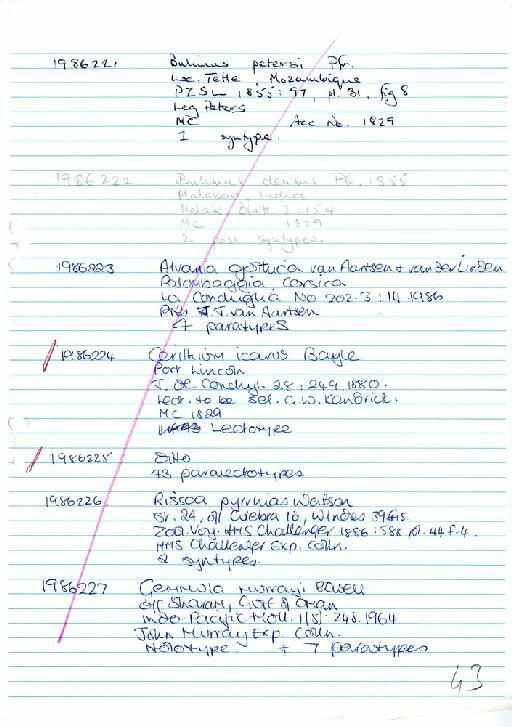 1986221 Bulimus petersi Pfr.
Loc. Tette, Mozambique
PZSL 1855: 97, pl. 31, fig 8
Leg Peters
MC Acc No. 1829
1 syntype.
1986222 Bulimus densus Pfr. 1855
Malabar, India
Malak Blatt 2: 154
MC 1829
2 poss syntypes.
1986223 Alvania gothica van Aartsen + van der Linden
Palombaggia, Corsica
La Conchiglia No 202-3: 14 1986
Pres. J.J. van Aartsen
4 paratypes
1986224 Cerithium icarus Bayle
Port Lincoln
J. de Conchyl. 28: 249. 1880.
Lect. to be sel. C.W. Kenbrick.
MC 1829
Lectotype
1986225 Ditto
43 paralectotypes
1986226 Rissoa pyrrhias Watson
St. 24, off Culebra Id, W Indies 390 fms.
Zoo. Voy. HMS Challenger 1886: 588 pl. 44 f. 4.
HMS Challenger Exp. Colln.
2 syntypes.
1986227 Gemmula murrayi Powell
off Sharam, Gulf of Oman
Indo-Pacific Moll. 1(5): 248. 1964
John Murray Exp. Colln.
Holotype + 7 paratypes
43